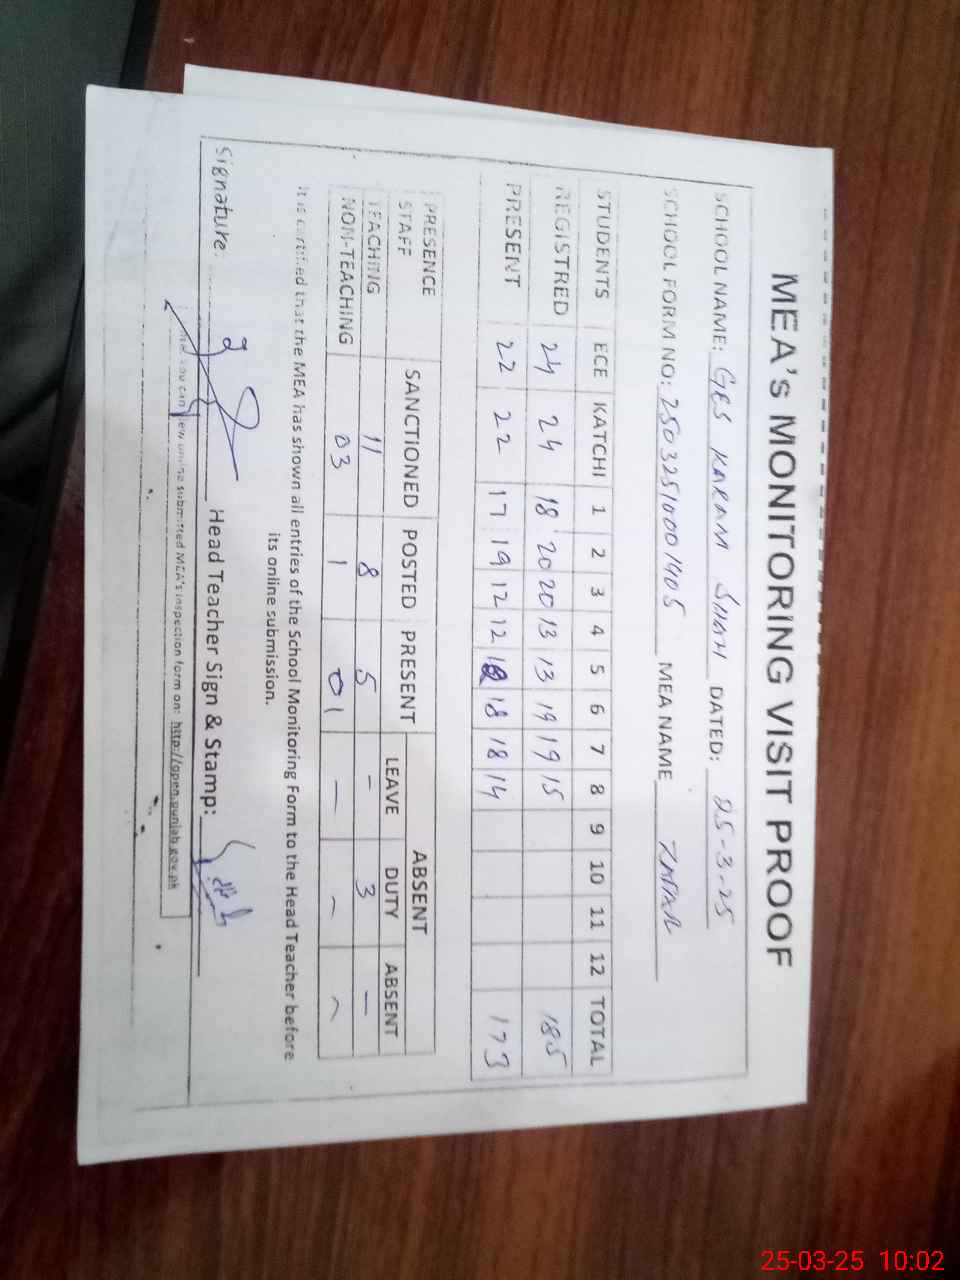 MEA's MONITORING VISIT PROOF
SCHOOL NAME: GES KARAM SHAH DATED: 25-3-25
SCHOOL FORM NO: 25032510001405 MEA NAME ZAFAR
STUDENTS ECE KATCHI 1 2 3 4 5 6 7 8 9 10 11 12 TOTAL
REGISTRED 24 24 18 20 20 13 13 19 19 15 185
PRESENT 22 22 17 19 12 12 18 18 14 173
PRESENCE STAFF SANCTIONED POSTED PRESENT ABSENT
LEAVE DUTY ABSENT
TEACHING 11 8 5 - 3 -
NON-TEACHING 03 1 01 - - -
It is certified that the MEA has shown all entries of the School Monitoring Form to the Head Teacher before
its online submission.
Signature: Head Teacher Sign & Stamp:
you can view online submitted MEA's inspection form on: http://open.punjab.gov.pk
25-03-25 10:02